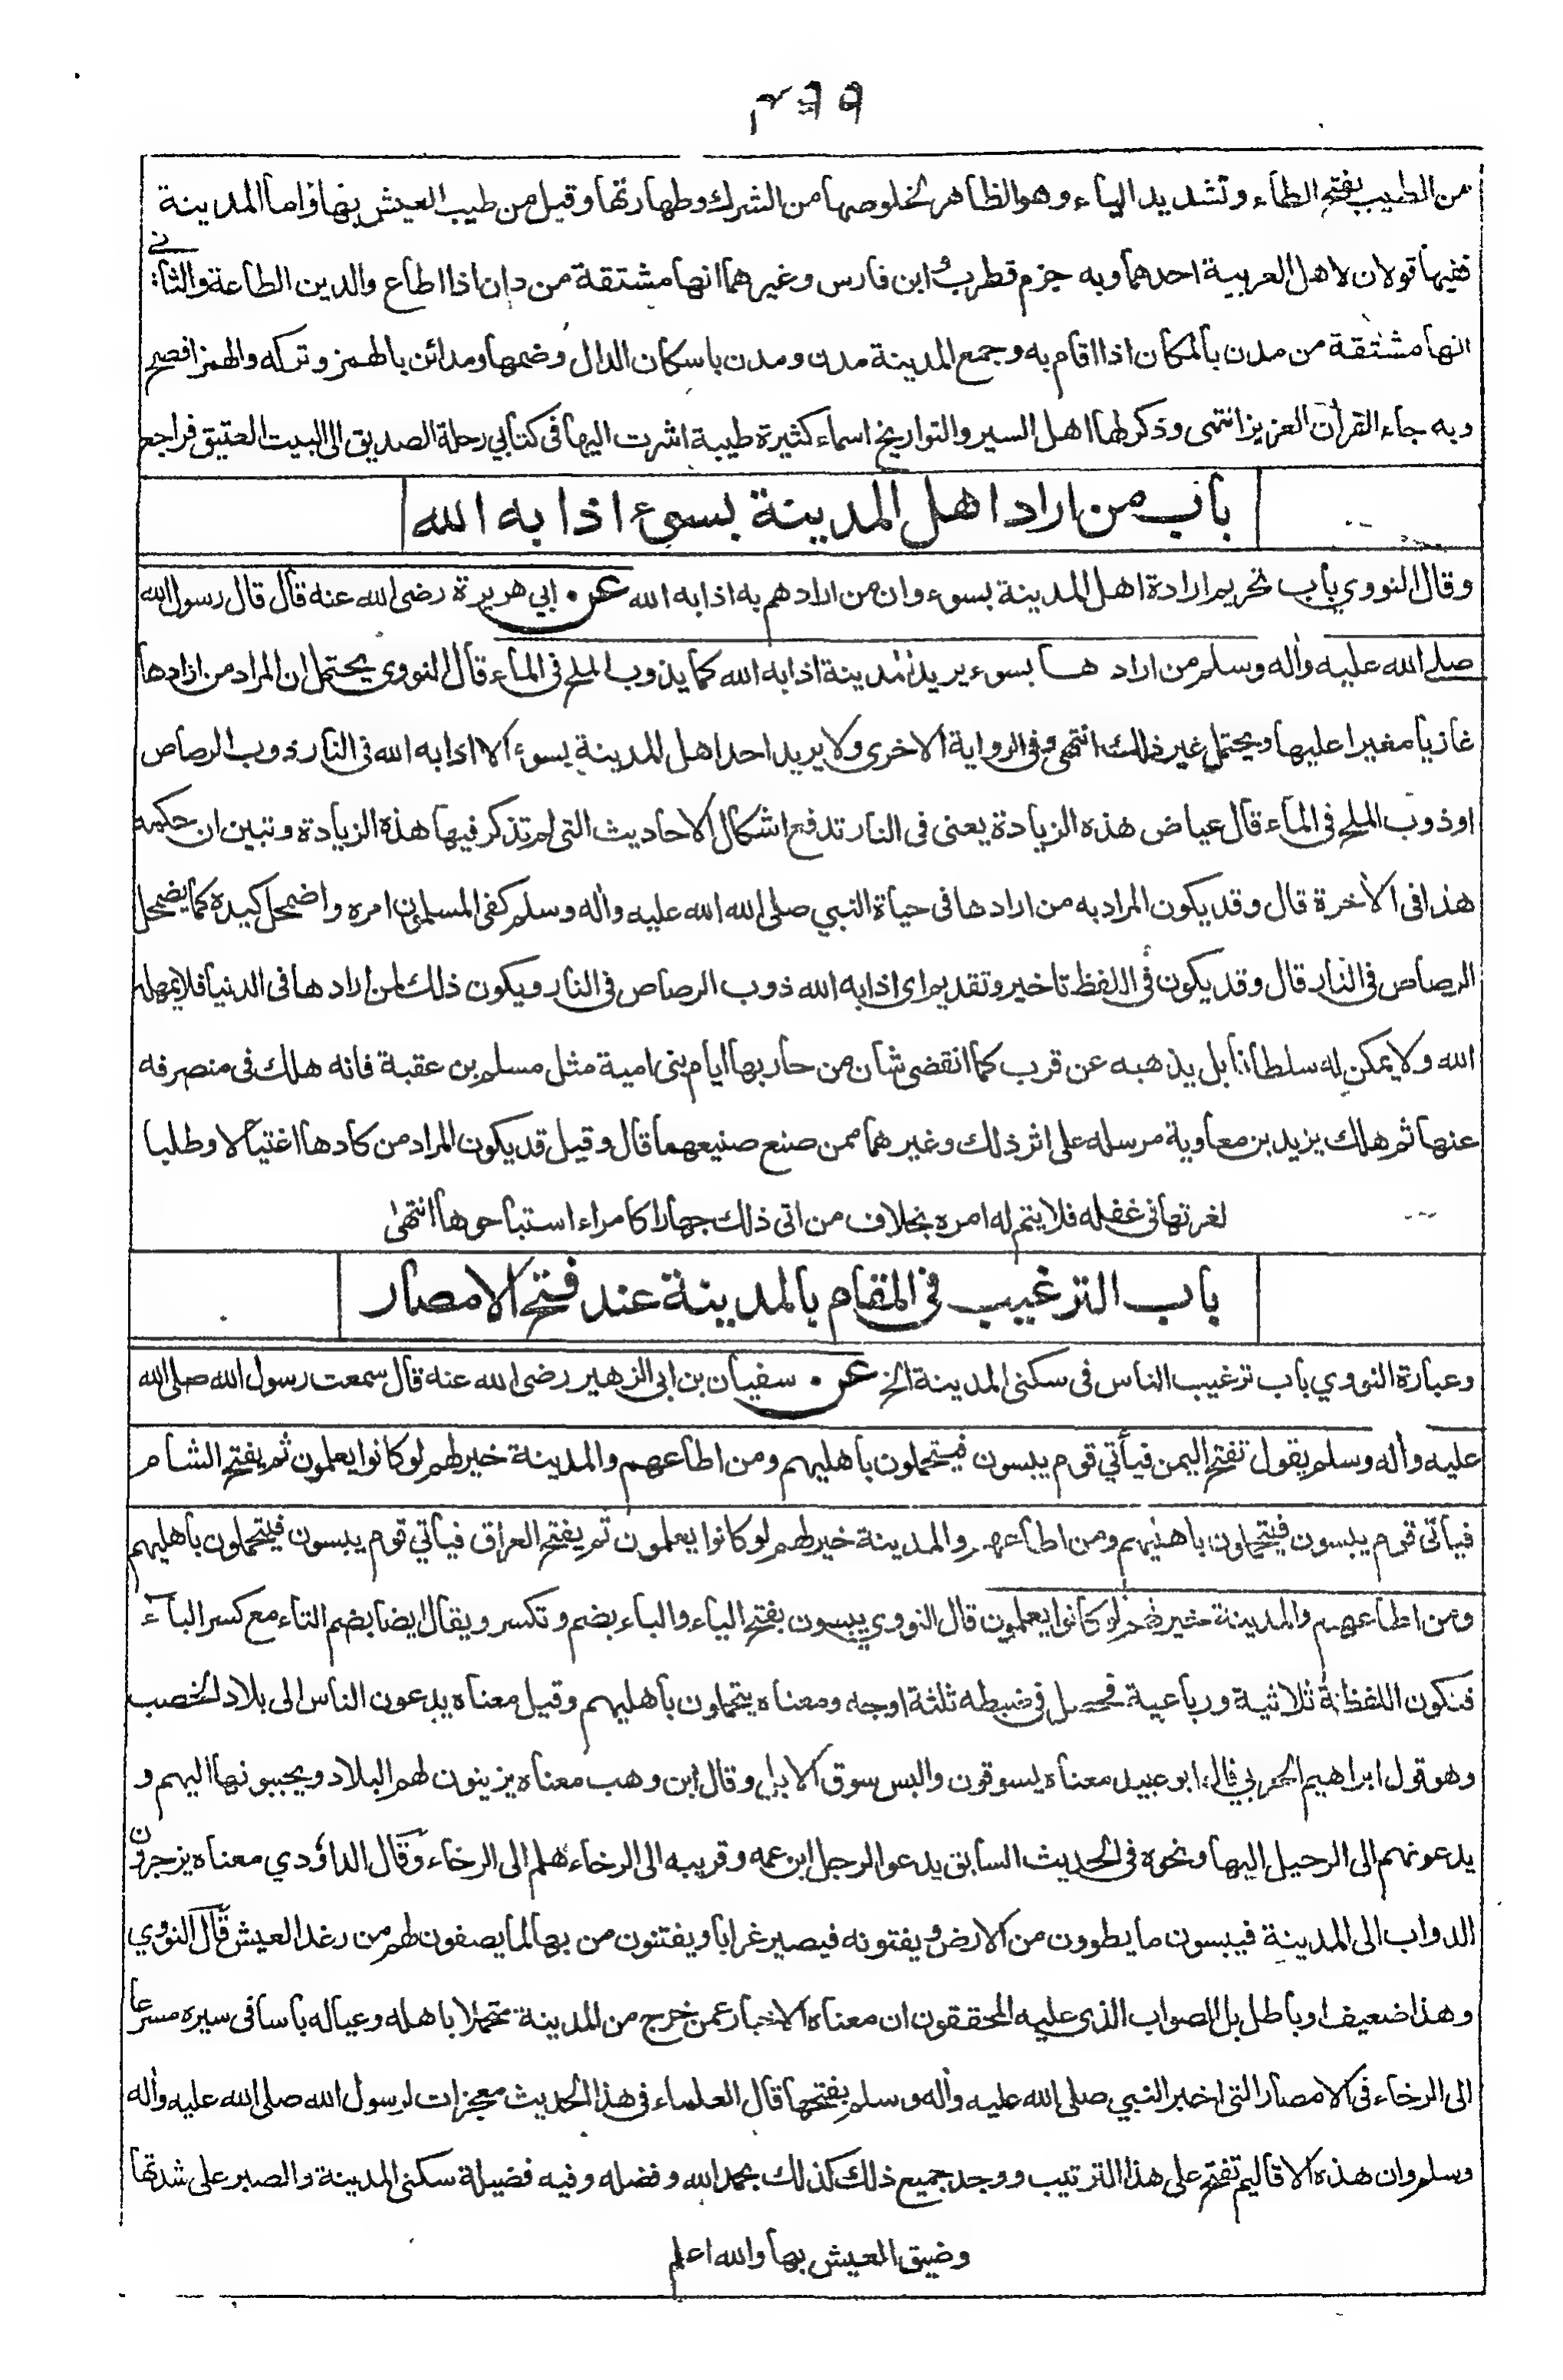 ٤٩٩
من الطيب بفتح الطاء وتشديد الياء وهو الظاهر لخلوصها من الشرك وطهارتها وقيل من طيب العيش بها واما المدينة
ففيها قولان لاهل العربية احدهما وبه جزم قطرب وابن فارس وغيرهما انها مشتقة من دان اذا اطاع والدين الطاعة والثاني
انها مشتقة من مدن بالمكان اذا اقام به وجمع المدينة مدن ومدن باسكان الدال وضمها ومدائن بالهمز وتركه والهمز افصح
وبه جاء القرآن العزيز انتهى وذكر لها اهل السير والتواريخ اسماء كثيرة طيبة اشرت اليها في كتابي رحلة الصديق الى البيت العتيق فراجعه
باب من اراد اهل المدينة بسوء اذابه الله
وقال النووي باب تحريم ارادة اهل المدينة بسوء وان من ارادهم به اذابه الله عن ابي هريرة رضى الله عنه قال قال رسول الله
صلى الله عليه وآله وسلم من ارادها بسوء يريد المدينة اذابه الله كما يذوب الملح في الماء قال النووي يحتمل ان المراد من ارادها
غازيا مغيرا عليها ويحتمل غير ذلك انتهى وفي الرواية الاخرى ولا يريد احد اهل المدينة بسوء الا اذابه الله في النار ذوب الرصاص
او ذوب الملح في الماء قال عياض هذه الزيادة يعنى في النار تدفع اشكال الاحاديث التي لم تذكر فيها هذه الزيادة وتبين ان حكمه
هذا في الآخرة قال وقد يكون المراد به من ارادها في حياة النبي صلى الله الله عليه وآله وسلم كفى المسلمين امره واضمحل كيده كما يضمحل
الرصاص في النار قال وقد يكون في اللفظ تاخير وتقديم اي اذابه الله ذوب الرصاص في النار ويكون ذلك لمن ارادها في الدنيا فلا يمهله
الله ولا يمكن له سلطانا بل يذهبه عن قرب كما انقضى شان من حاربها ايام بني امية مثل مسلم بن عقبة فانه هلك في منصرفه
عنها ثم هلك يزيد بن معاوية مرسله على اثر ذلك وغيرهما ممن صنع صنيعهما قال وقيل قد يكون المراد من كادها اغتيالا وطلبا
لغرتها في غفله فلا يتم له امره بخلاف من اتى ذلك جهارا كامراء استباحوها انتهى
باب الترغيب في المقام بالمدينة عند فتح الامصار
وعبارة النووي باب ترغيب الناس في سكنى المدينة الخ عن سفيان بن ابي الزهير رضى الله عنه قال سمعت رسول الله صلى الله
عليه وآله وسلم يقول تفتح اليمن فيأتي قوم يبسون فيتحملون باهليهم ومن اطاعهم والمدينة خير لهم لو كانوا يعلمون ثم يفتح الشام
فيأتي قوم يبسون فيتحملون باهليهم ومن اطاعهم والمدينة خير لهم لو كانوا يعلمون ثم يفتح العراق فياتي قوم يبسون فيتحملون باهليهم
ومن اطاعهم والمدينة خير لهم لو كانوا يعلمون قال النووي يبسون بفتح الياء والباء بضم وتكسر ويقال ايضا بضم التاء مع كسر الباء
فتكون اللفظة ثلاثية ورباعية فحصل في ضبطه ثلثة اوجه ومعناه يتحملون باهليهم وقيل معناه يدعون الناس الى بلاد الخصب
وهو قول ابراهيم الحربي قال ابو عبيد معناه يسوقون والبس سوق الابل وقال ابن وهب معناه يزينون لهم البلاد ويحببونها اليهم و
يدعونهم الى الرحيل اليها ونحوه في الحديث السابق يدعو الرجل ابن عمه وقريبه الى الرخاء هلم الى الرخاء وقال الداؤدي معناه يزجرون
الدواب الى المدينة فيبسون ما يطوون من الارض ويفتونه فيصير غرابا ويفتنون من بها لما يصفون لهم من رغد العيش قال النووي
وهذا ضعيف او باطل بل الصواب الذي عليه المحققون ان معناه الاخبار عمن خرج من المدينة متحملا باهله وعياله باسا في سيره مسرعا
الى الرخاء في الامصار التي اخبر النبي صلى الله عليه وآله وسلم بفتحها قال العلماء في هذا الحديث معجزات لرسول الله صلى الله عليه وآله
وسلم وان هذه الاقاليم تفتح على هذا الترتيب ووجد جميع ذلك كذلك بحمد الله وفضله وفيه فضيلة سكنى المدينة والصبر على شدتها
وضيق العيش بها والله اعلم